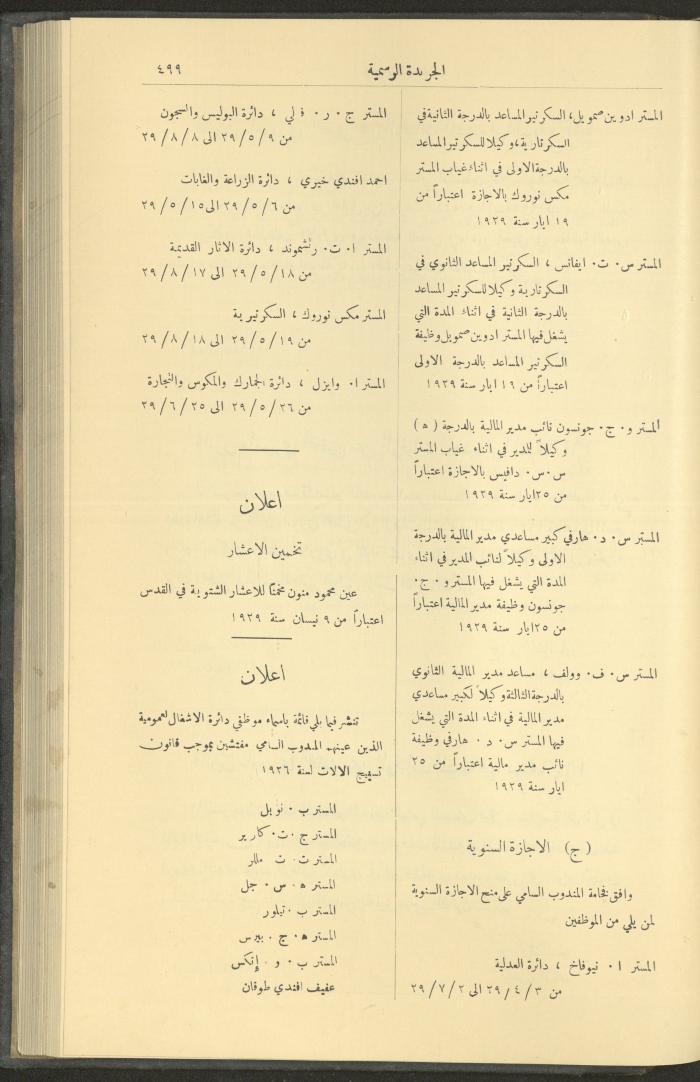 الجريدة الرسمية
٤٩٩
المستر ادوين صمويل، السكرتير المساعد بالدرجة الثانية في
السكرتارية، وكيلا للسكرتير المساعد
بالدرجة الاولى في اثناء غياب المستر
مكس نوروك بالاجازة اعتباراً من
١٩ ايار سنة ١٩٢٩
المستر س . ت . ايفانس ، السكرتير المساعد الثانوي في
السكرتارية وكيلا للسكرتير المساعد
بالدرجة الثانية في اثناء المدة التي
يشغل فيها المستر ادوين صمويل وظيفة
السكرتير المساعد بالدرجة الاولى
اعتباراً من ١٩ ايار سنة ١٩٢٩
المستر و . ج . جونسون نائب مدير المالية بالدرجة ( ه )
وكيلاً للمدير في اثناء غياب المستر
س . س . دافيس بالاجازة اعتباراً
من ٢٥ ايار سنة ١٩٢٩
المستر س . د . هارفي كبير مساعدي مدير المالية بالدرجة
الاولى وكيلاً لنائب المدير في اثناء
المدة التي يشغل فيها المستر و . ج .
جونسون وظيفة مدير المالية اعتباراً
من ٢٥ ايار سنة ١٩٢٩
المستر س . ف . وولف ، مساعد مدير المالية الثانوي
بالدرجة الثالثة وكيلاً لكبير مساعدي
مدير المالية في اثناء المدة التي يشغل
فيها المستر س . د . هارفي وظيفة
نائب مدير مالية اعتباراً من ٢٥
ايار سنة ١٩٢٩
( ج ) الاجازة السنوية
وافق فخامة المندوب السامي على منح الاجازة السنوية
لمن يلي من الموظفين
المستر ا . نيوفاخ ، دائرة العدلية
من ٢٩/٤/٣ الى ٢٩/٧/٢
المستر ج . ر . فلي ، دائرة البوليس والسجون
من ٢٩/٥/٩ الى ٢٩/٨/٨
احمد افندي خيري ، دائرة الزراعة والغابات
من ٢٩/٥/٦ الى ٢٩/٥/١٥
المستر ا . ت . رتشموند ، دائرة الاثار القديمة
من ٢٩/٥/١٨ الى ٢٩/٨/١٧
المستر مكس نوروك ، السكرتيرية
من ٢٩/٥/١٩ الى ٢٩/٨/١٨
المستر ا . وايزل ، دائرة الجمارك والمكوس والتجارة
من ٢٩/٥/٢٦ الى ٢٩/٦/٢٥
اعلان
تخمين الاعشار
عين محمود منون مخمنًا للاعشار الشتوية في القدس
اعتباراً من ٩ نيسان سنة ١٩٢٩
اعلان
تنشر فيما يلي قائمة باسماء موظفي دائرة الاشغال العمومية
الذين عينهم المندوب السامي مفتشين بموجب قانون
تسييج الالات لسنة ١٩٢٦
المستر ب . نوبل
المستر ج . ت . كارير
المستر ت . ت . مللر
المستر ه . س . جل
المستر ب . تيلور
المستر ه . ج . بيرس
المستر ب . و . إتكس
عفيف افندي طوقان